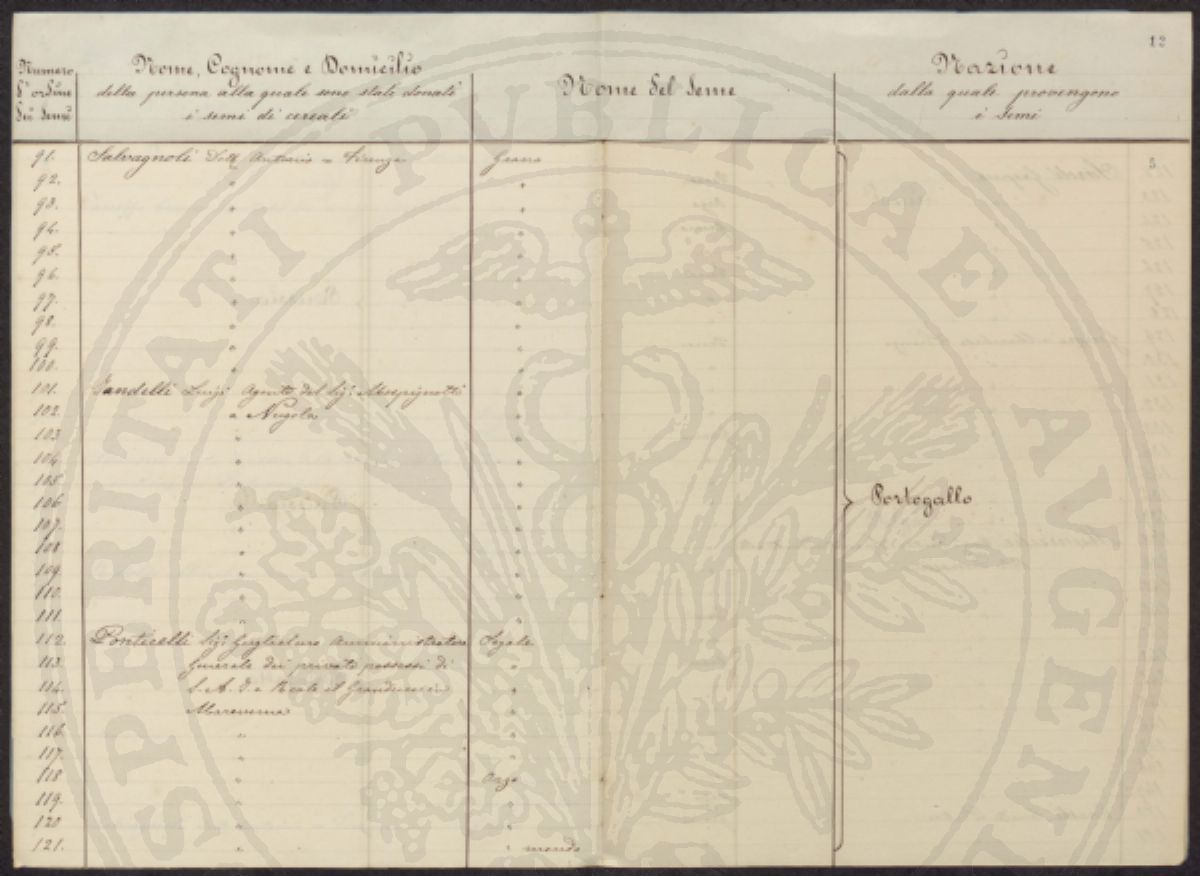 12
Numero d'ordine dei semi
Nome, Cognome e Domicilio della persona alla quale sono stati donati i semi di cereali
Nome del Seme
Nazione dalla quale provengono i Semi
91. Salvagnoli Dott. Antonio a Firenze Grano 5
92. " "
93. " "
94. " "
95. " "
96. " "
97. " "
98. " "
99. " "
100. " "
101. Jandelli Luigi Agente del Sig. "
102. a Nugola "
103 " "
104 " "
105. " "
106 " " Portogallo
107. " "
108 " "
109. " "
110. " "
111. " "
112. Ponticelli Sig. Guglielmo Amministratore Segale
113. Generale dei privati possessi di "
114. S. A. I. e Reale il Granduca in "
115. Maremma "
116. " "
117. " "
118 " Orzo
119. " "
120 " "
121. " " mondo
SPERITATI PUBLICAE AUGEN